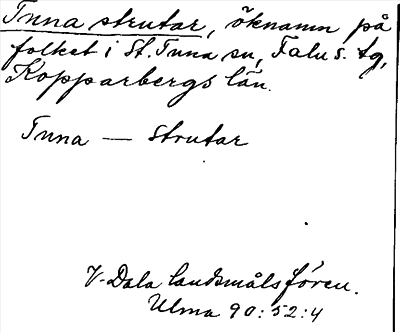 Tuna strutar, öknamn på
folket i St. Tuna sn, Falu s. tg,
Kopparbergs län.
Tuna — strutar
V-Dala landsmålsfören.
Ulma 90:52:4